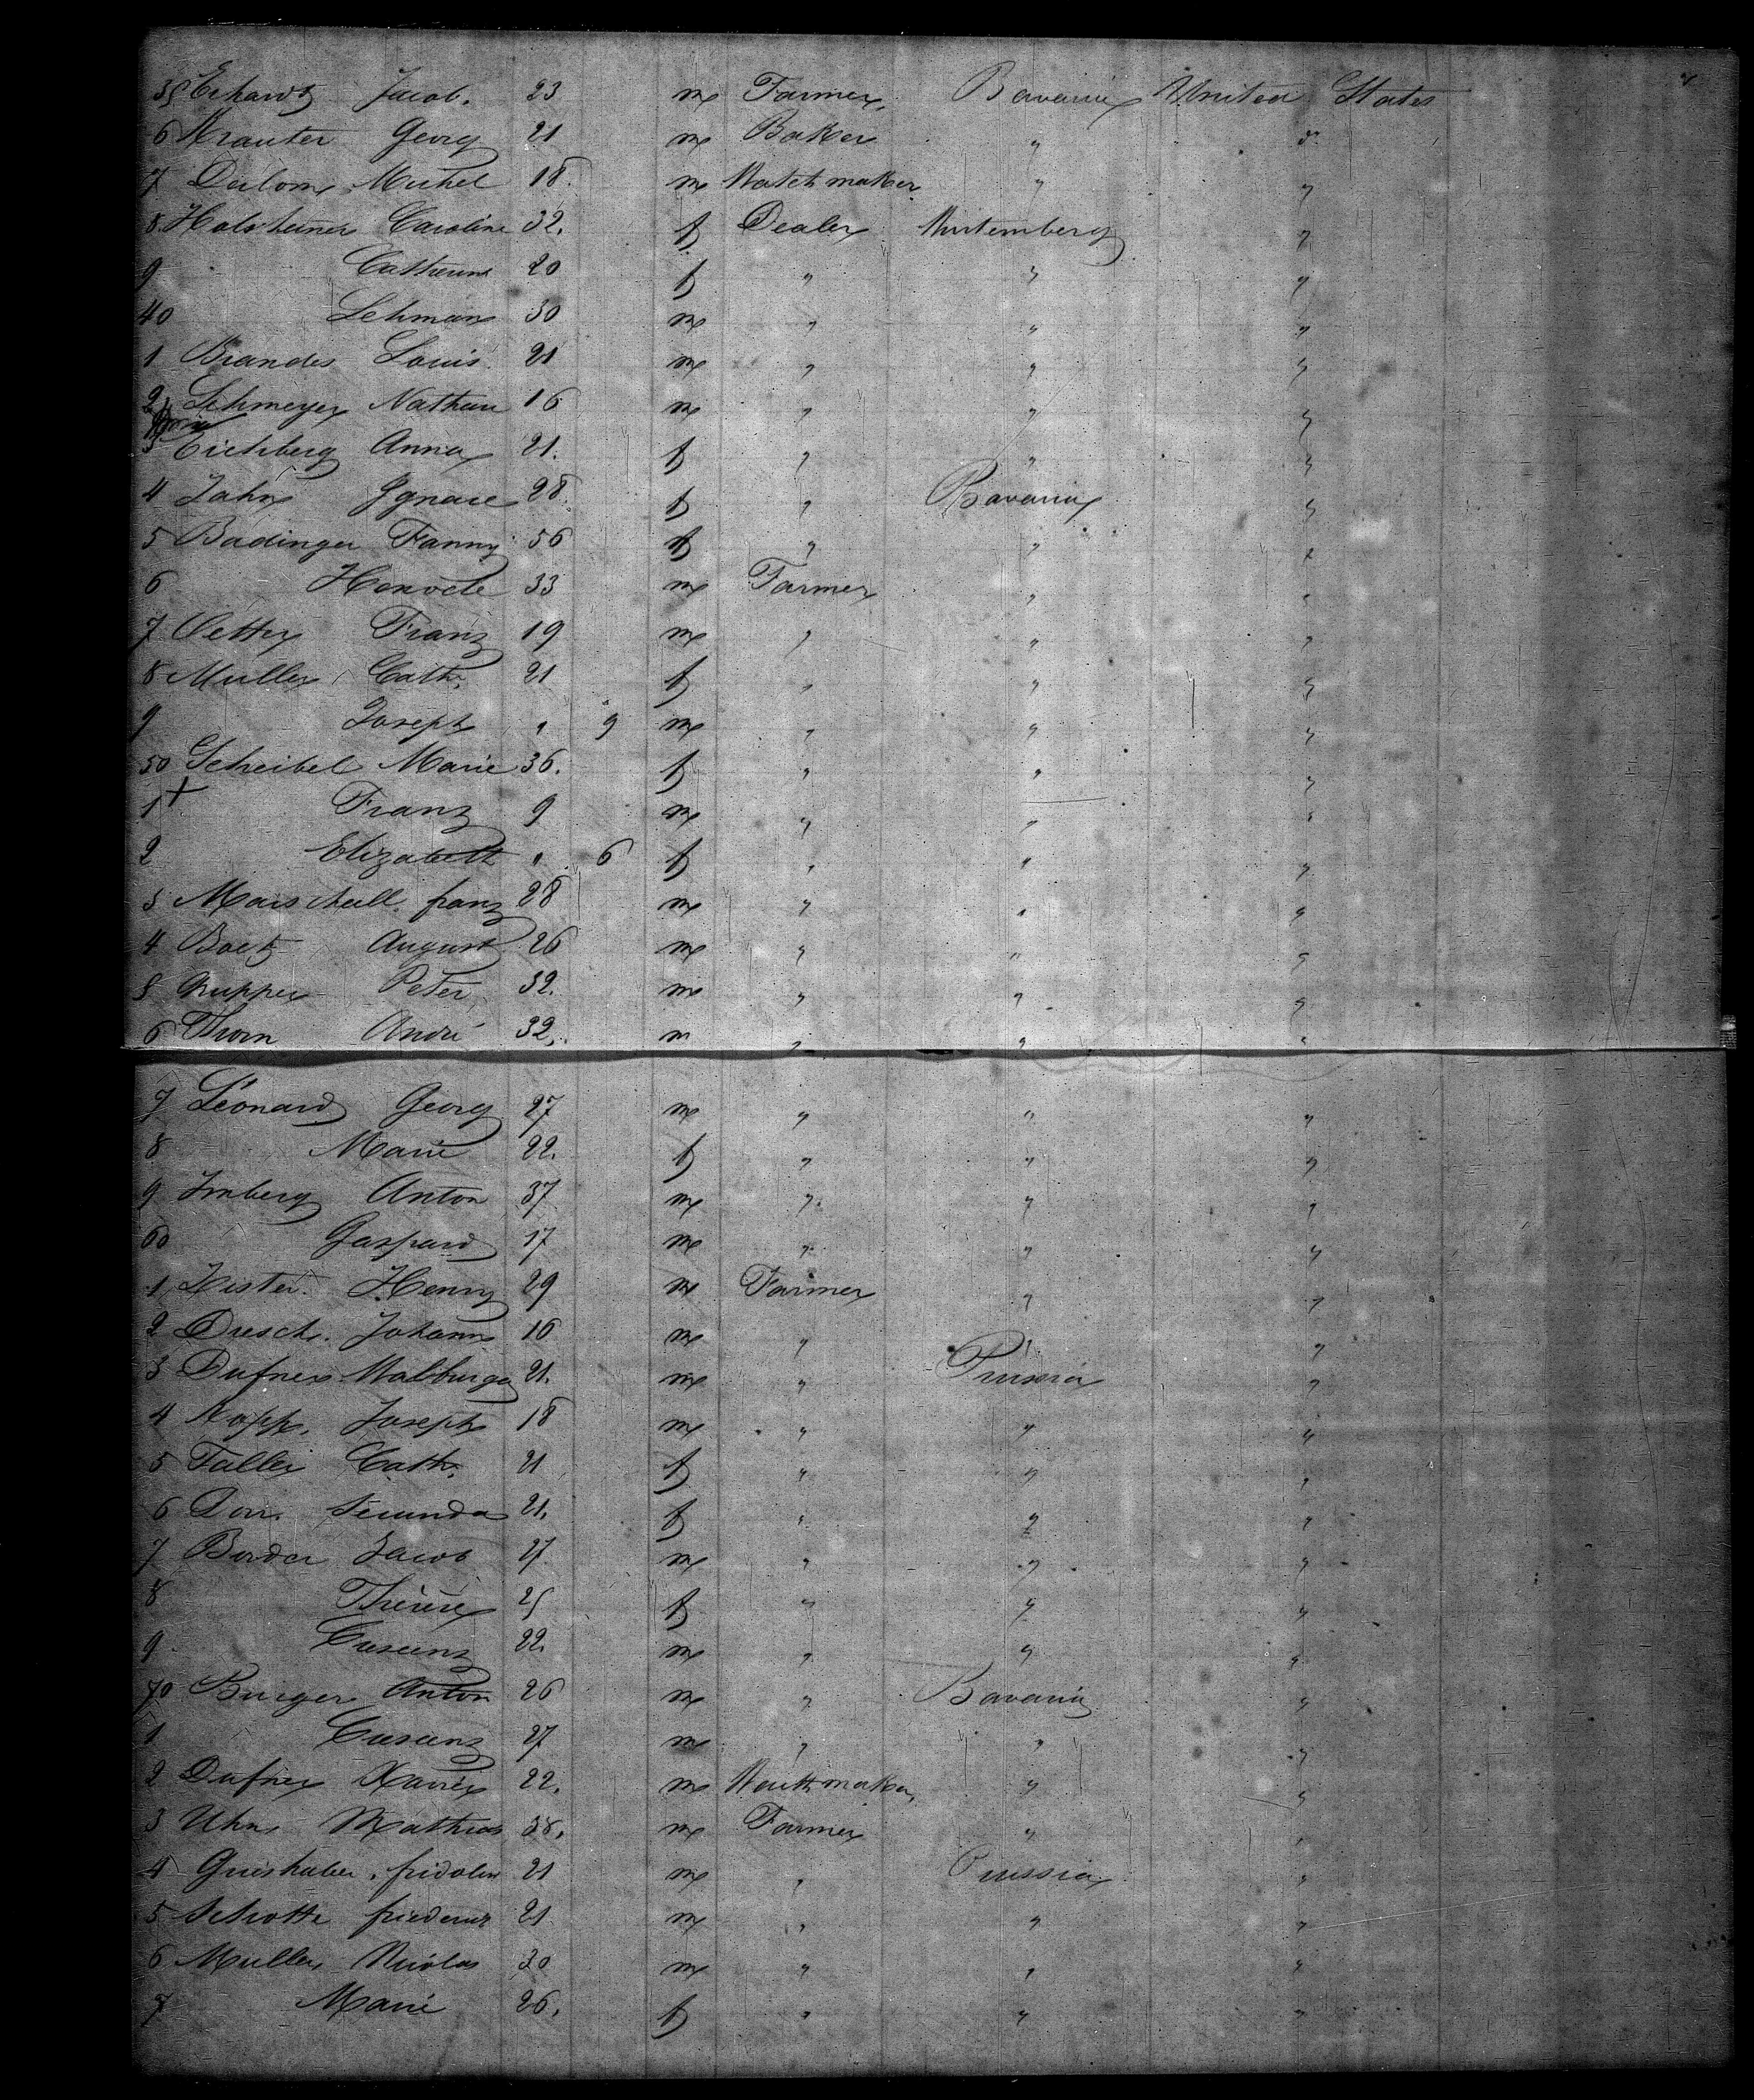 35 Erhardt Jacob. 23 m Farmer Bavaria United States
6 Krauter Georg 21 m Baker " "
7 Michel 18. m Watchmaker " "
8 Caroline 32. f Dealer Wurtemberg "
9 Catherine 20 f " " "
40 Lehman 30 m " " "
1 Brandes Louis. 21 m " " "
2 Lehmeyer Nathan 16 m " " "
3 Eichberg Anna 21. f " " "
4 Jahn Ignace 28. f " Bavaria "
5 Badinger Fanny 56 f " " "
6 33 m Farmer " "
7 Vetter Franz 19 m " " "
8 Muller Cath. 21 f " " "
9 Joseph " 9 m " " "
50 Scheibel Marie 36. f " " "
1 + Franz 9 m " " "
2 Elizabeth " 6 f " " "
3 Marschall. franz 28 m " " "
4 August 26 m " " "
5 Peter 32. m " " "
6 Thorn André 32. m " " "
7 Léonard Georg 27 m " " "
8 Marie 22. f " " "
9 Imberg Anton 37 m " " "
60 Gaspard 17 m " " "
1 Henry 29 m Farmer " "
2 Dresch. Johann 16 m " " "
3 Dufner Walburga 21. m " Prussia "
4 Joseph 18 m " " "
5 Faller Cath. 21 f " " "
6 Dorr. Secunda 21. f " " "
7 Jacob 27. m " " "
8 Thérèse 25 f " " "
9. Cresenz 22. m " " "
70 Burger Anton 26 m " Bavaria "
1 Cresenz 27 m " " "
2 Dufner Xavier 22. m " "
3 Uhn Mathias m Farmer " "
4 Grieshaber. fridolin 21 m " Prussia "
5 Schotte 21. m " " "
6 Muller Nicolas 30 m " " "
7 Marie 26. f " " "